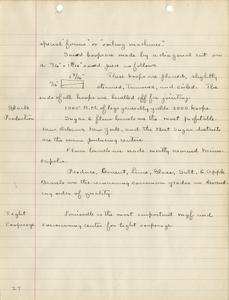 special "forms" or "coiling machines".
Sawed hoops are made by a diagonal cut on
a
as follows
These hoops are planed, slightly
steamed, trimmed, and coiled. The
ends of all hoops are
off for jointing.
Slack
Production
1000 B.M. of logs generally yields 3000 hoops.
Sugar & flour barrels are the most profitable.
New Orleans, New York, and the
Sugar districts
are the main producing centers.
Flour barrels are made mostly around Minne-
apolis.
Produce, Cement, Lime, Glass, Salt, & Apple
Barrels are the remaining common grades in descend-
ing order of quality.
Tight
Cooperage
Louisville is the most important mfg and
consuming center for tight cooperage.
27